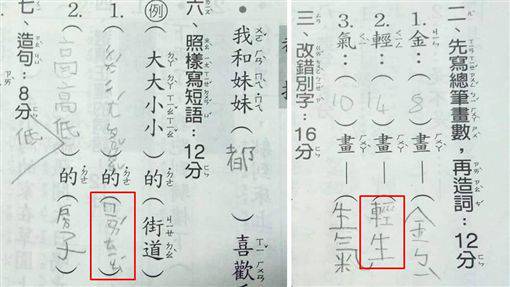 •我和妹妹（都）喜歡
六、照樣寫短語：12分
例（大大小小）的（街道）
1.（）的（）
2.（高高低低）的（房子）
七、造句：8分
二、先寫總筆畫數，再造詞：12分
1.金：（8）畫—（金）
2.輕：（14）畫—（輕生）
3.氣：（10）畫—（生氣）
三、改錯別字：16分